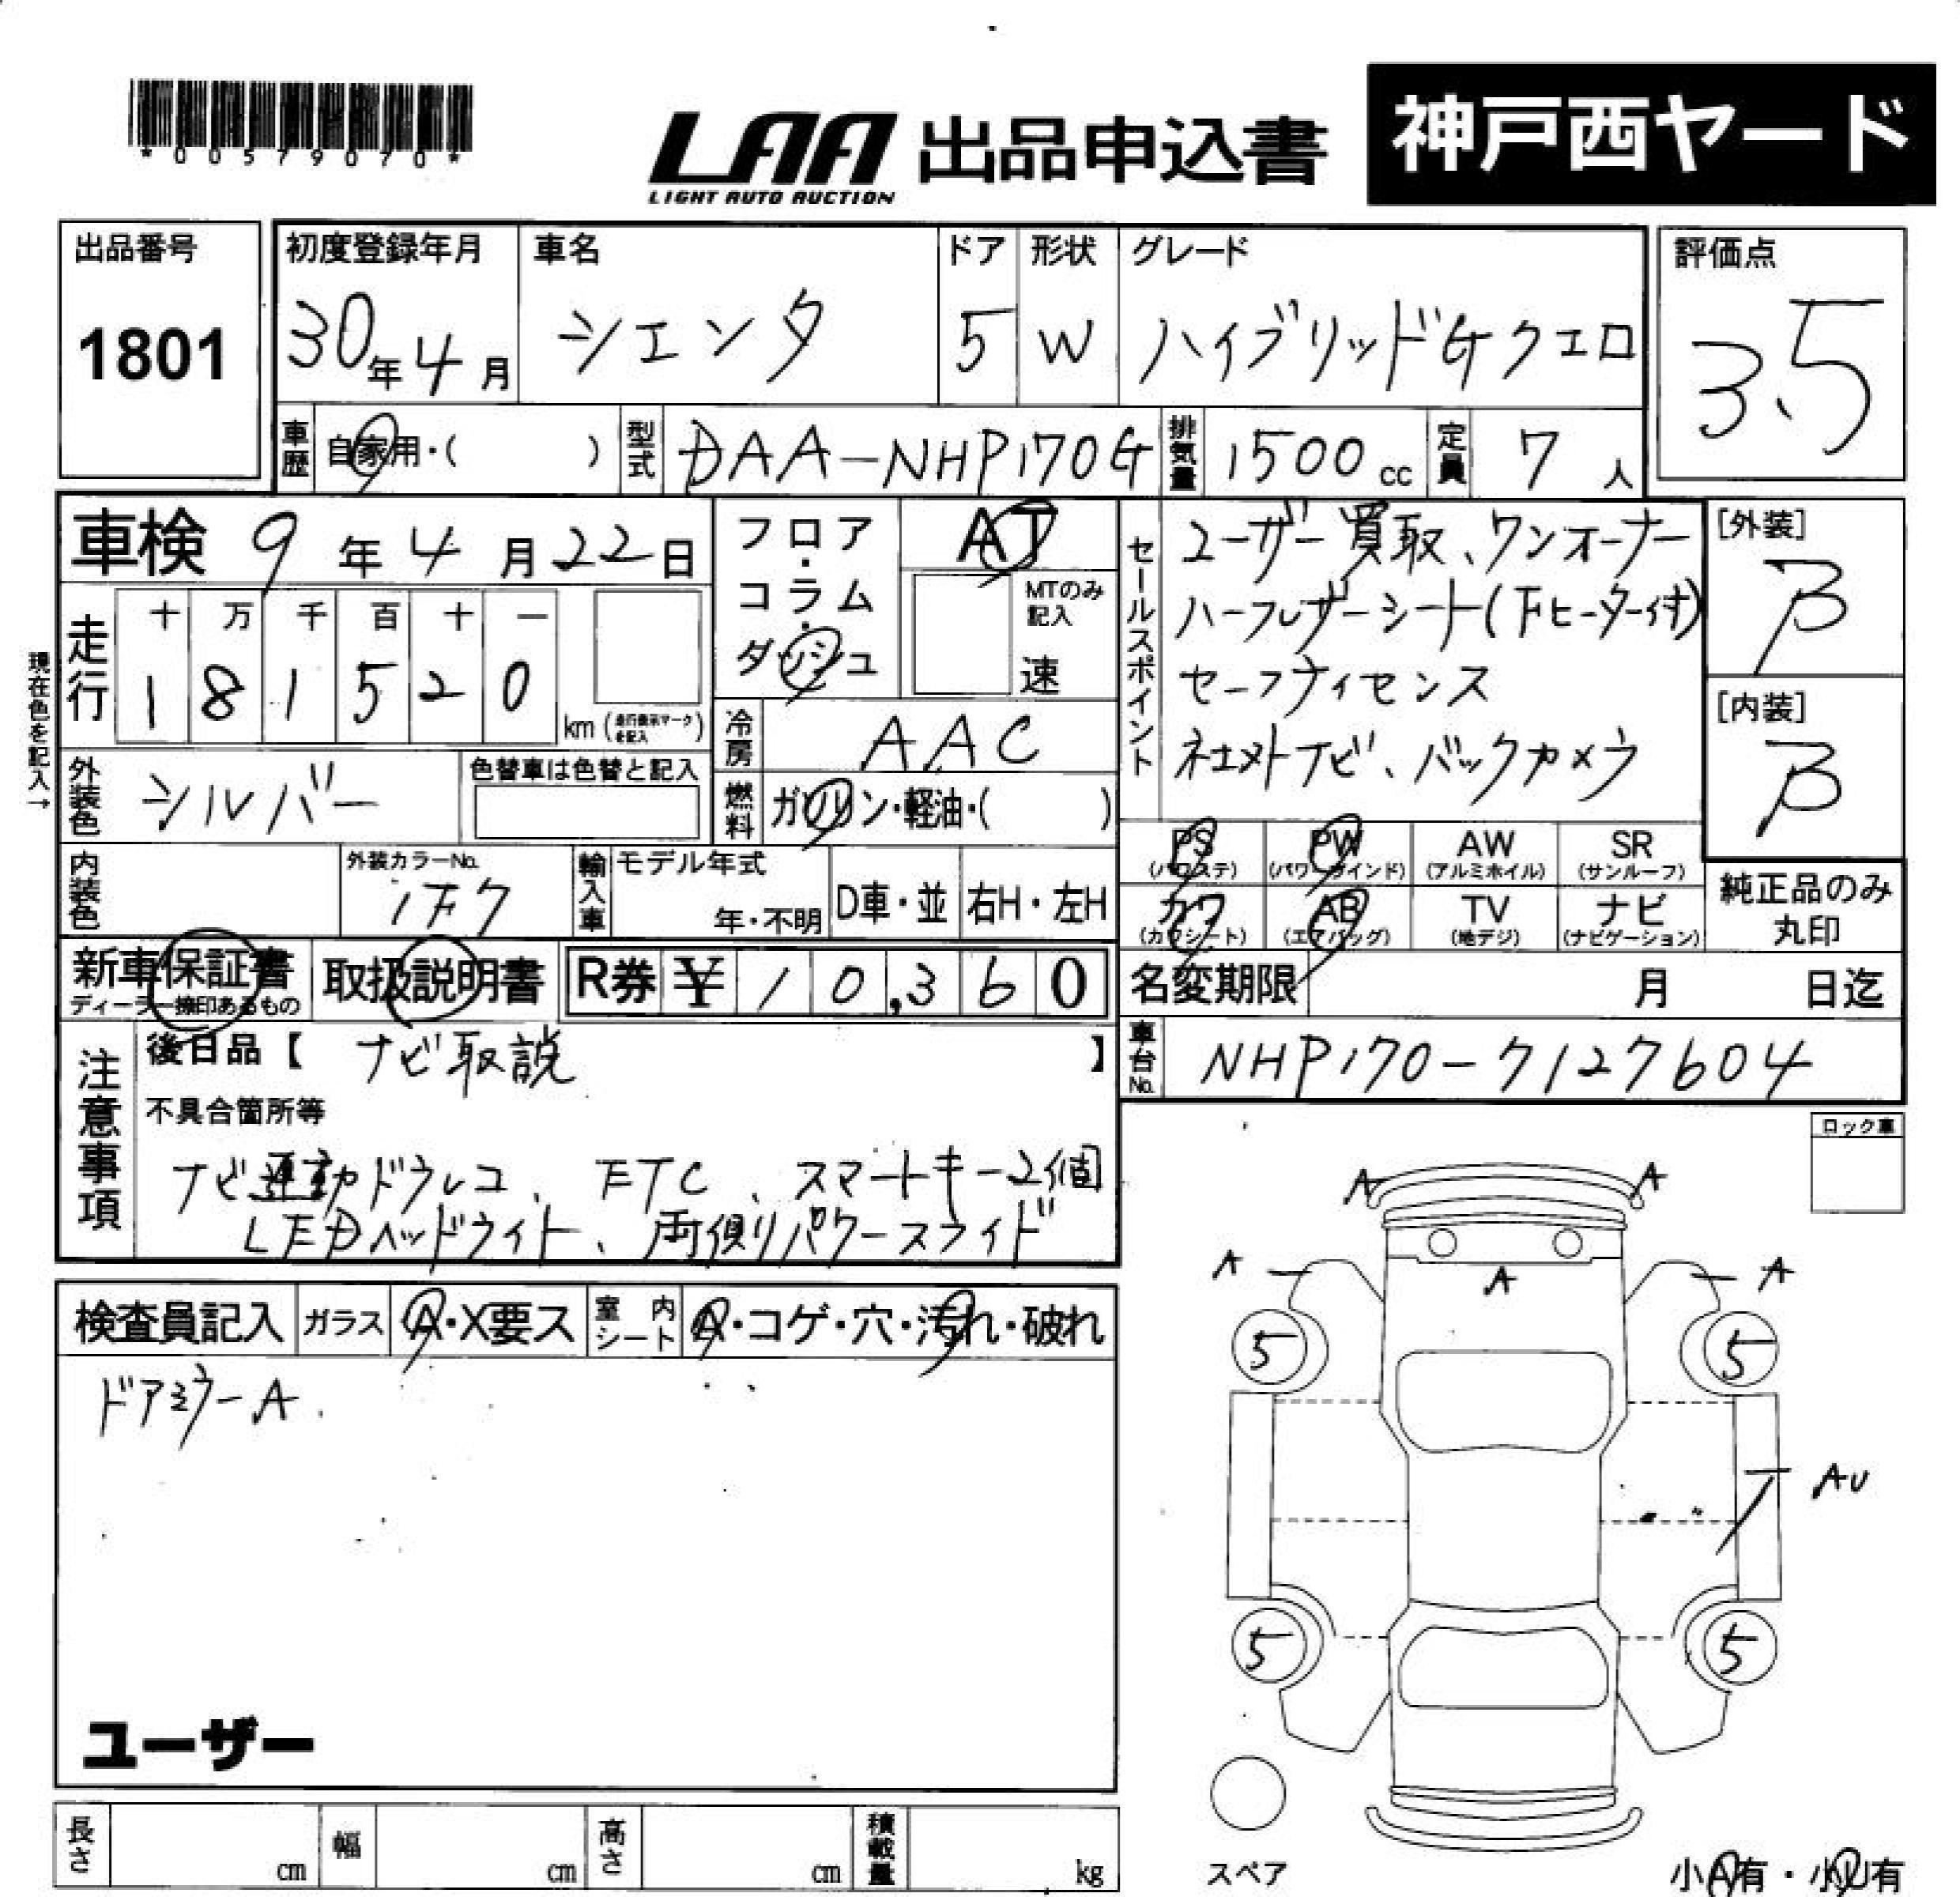 *00579070*
LAA 出品申込書 神戸西ヤード
LIGHT AUTO AUCTION
出品番号 1801
初度登録年月 30年4月
車名 シエンタ
ドア 5
形状 W
グレード ハイブリッドGクエロ
評価点 3.5
車歴 自家用・( )
型式 DAA-NHP170G
排気量 1500cc
定員 7人
車検 9年4月22日
フロア・コラム・ダッシュ
AT
MTのみ記入 速
現在色を記入→
走行 十 万 千 百 十 一
1 8 1 5 2 0 km (走行表示マークを記入)
冷房 AAC
燃料 ガソリン・軽油・( )
外装色 シルバー
色替車は色替と記入
内装色
外装カラーNo. 1F7
輸入車 モデル年式 年・不明 D車・並 右H・左H
セールスポイント
ユーザー買取、ワンオーナー
ハーフレザーシート(下ヒーター付)
セーフティセンス
ナビ、バックカメラ
[外装] B
[内装] B
PS (パワステ) PW (パワーウインド) AW (アルミホイル) SR (サンルーフ)
カワ (カワシート) AB (エアバッグ) TV (地デジ) ナビ (ナビゲーション)
純正品のみ丸印
新車保証書 ディーラー捺印あるもの
取扱説明書
R券 ¥10,360
名変期限 月 日迄
車台No. NHP170-7127604
注意事項
後日品【 ナビ取説 】
不具合箇所等
ナビ連動ドラレコ、ETC、スマートキー2個
LEDヘッドライト、両側パワースライド
ロック車
検査員記入 ガラス A・X要ス 室内シート A・コゲ・穴・汚れ・破れ
ドアミラーA
ユーザー
A A
A A A
5 5
AU
5 5
スペア
長さ cm 幅 cm 高さ cm 積載量 kg
小A有・小U有